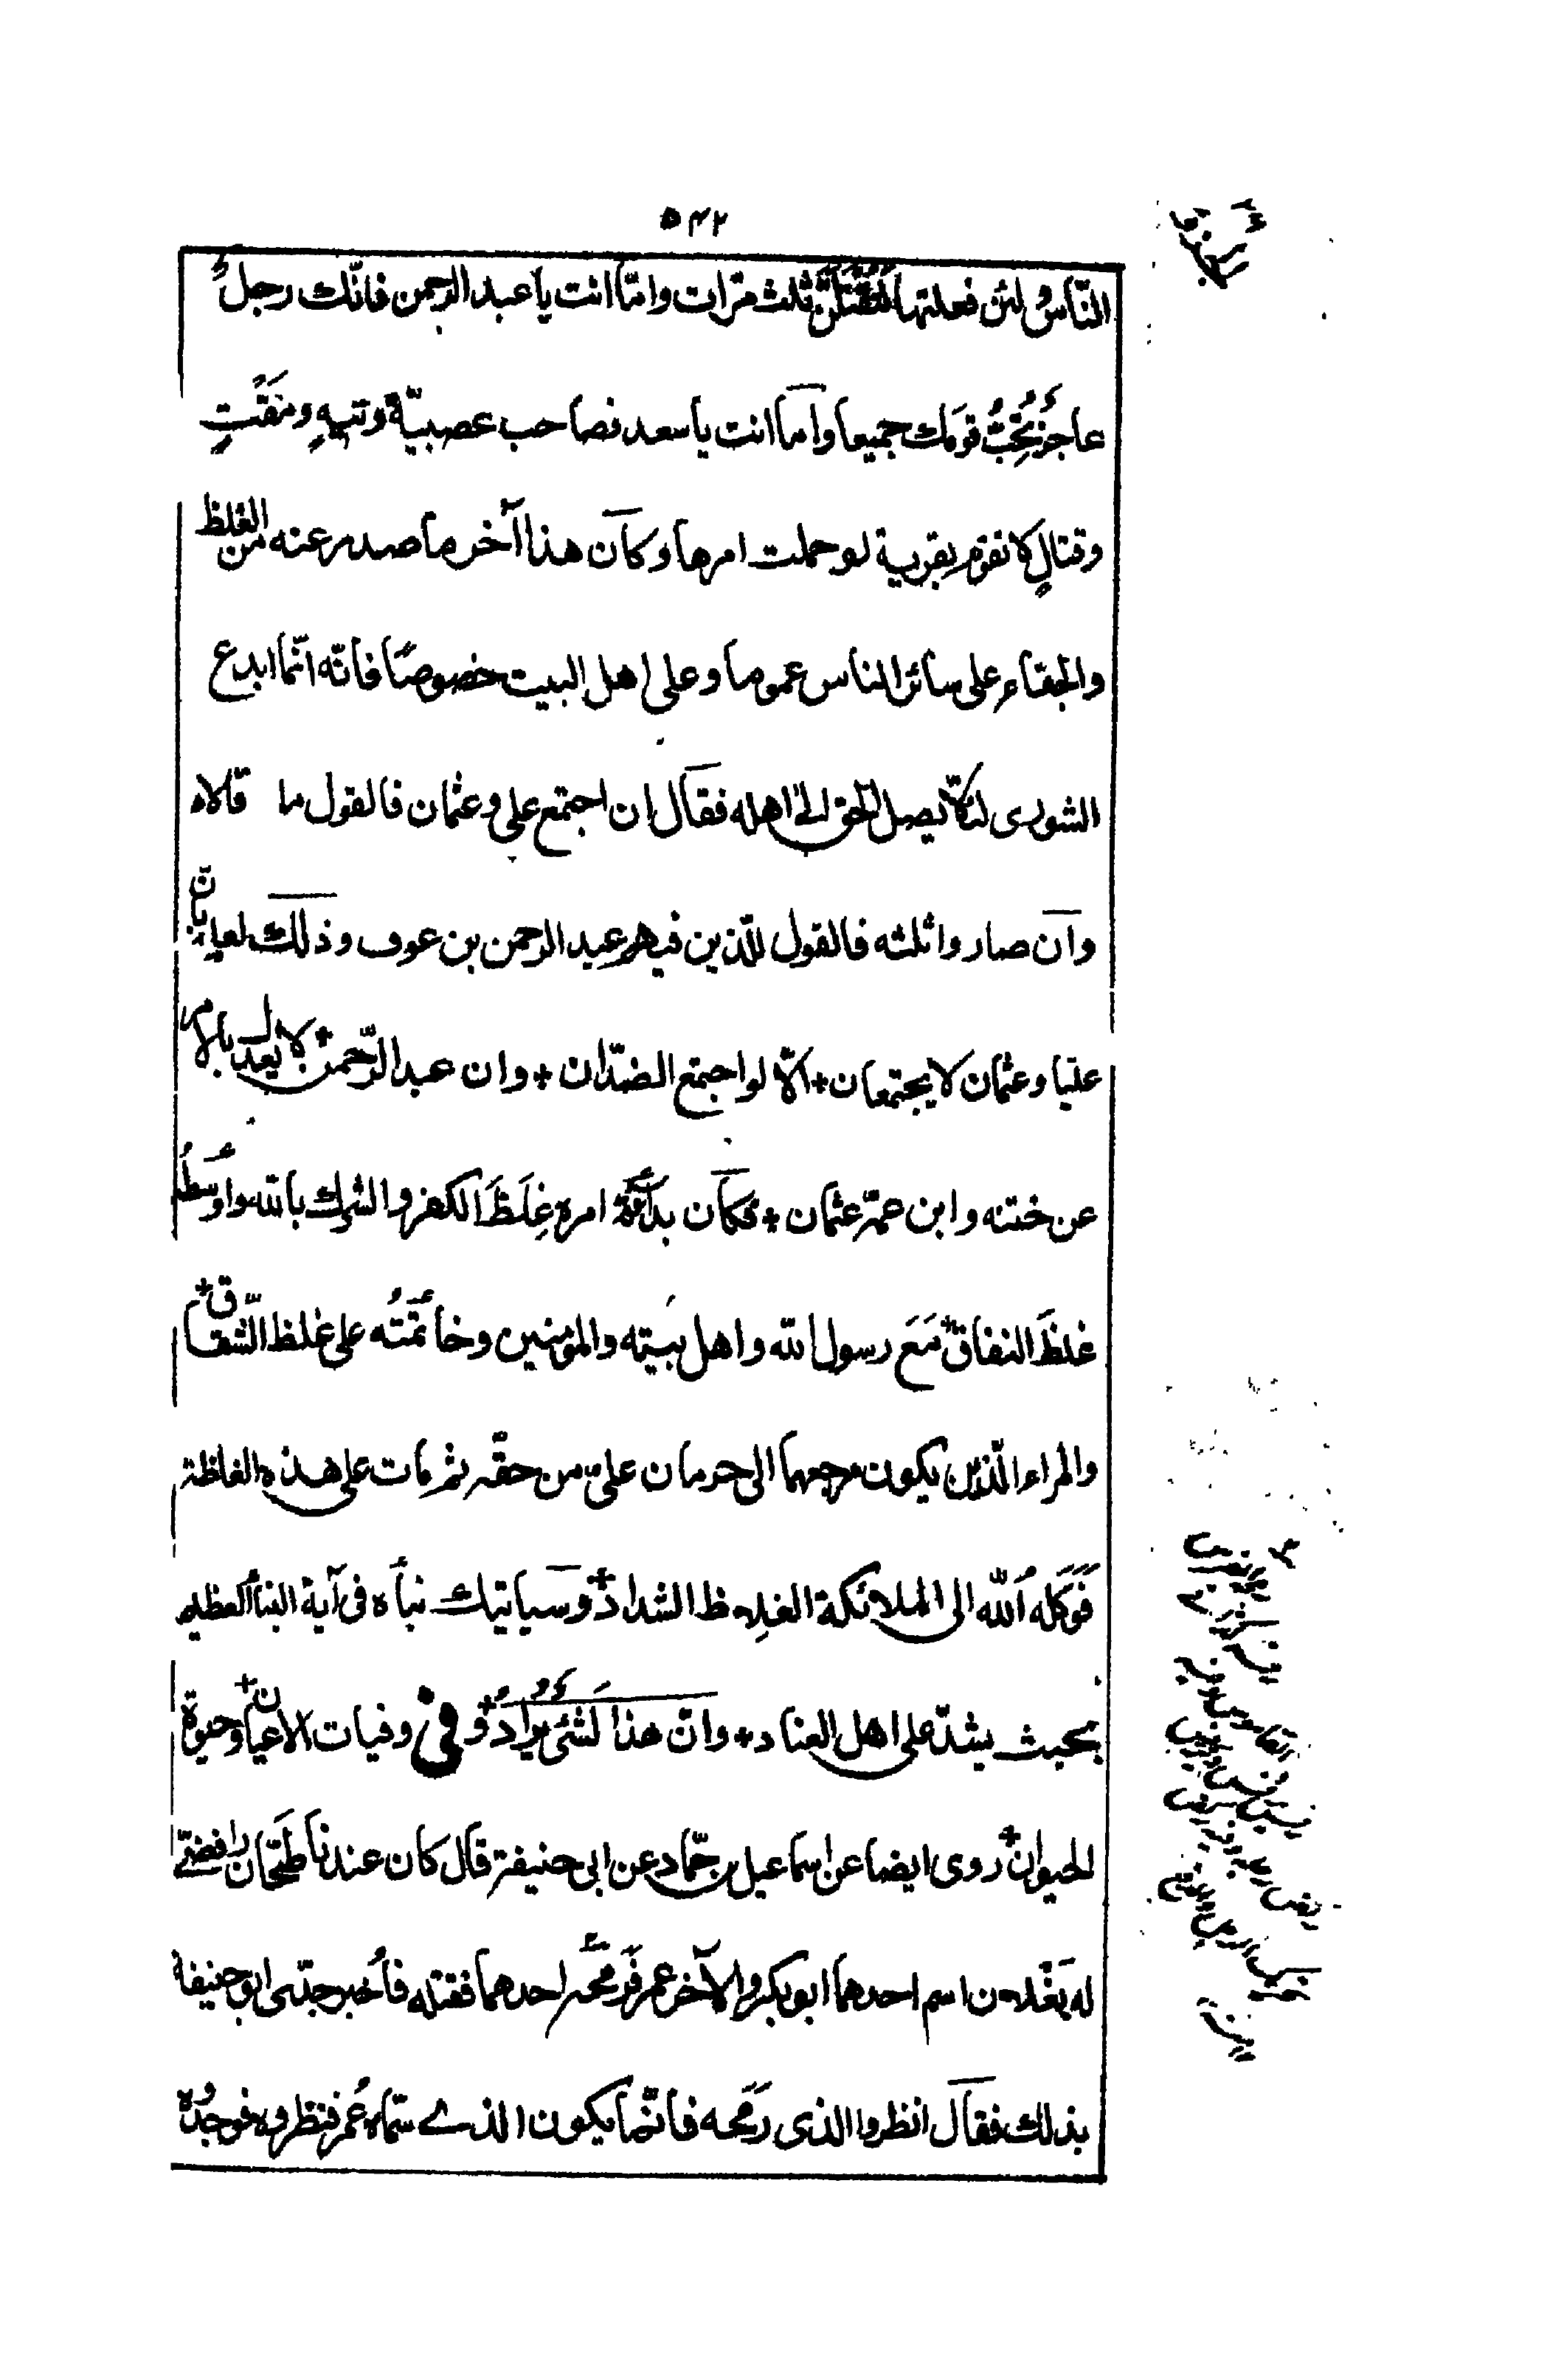 ۵۴۲
النّاس ولئن فعلتها لتُقتَلَنَّ ثلث مرّات وامّا انت يا عبد الرحمن فانّك رجلٌ
عاجزٌ تُحِبُّ قومَك جميعا وامّا انت يا سعد فصاحب عصبيّة وتيهٍ ومَقْتٍ
وقتالٍ لا تقوم بقرية لو حملت امرها وكان هذا آخر ما صدر عنه من الغلظ
والجفاء على سائر الناس عموما وعلى اهل البيت خصوصًا فانّه انّما ابدع
الشورى لئلّا يصل الحق الى اهله فقال ان اجتمع على وعثمان فالقول ما قالاه
وان صاروا ثلثه فالقول للّذين فيهم عبد الرحمن بن عوف وذلك لعلمه بانّ
عليّا وعثمان لا يجتمعان + الّا لو اجتمع الضدّان + وان عبد الرّحمن لا يعدل بالامر
عن ختنه وابن عمّه عثمان + فكان بداءة امره غِلَظَ الكفر والشرك بالله واوسطُه
غلظَ النفاق + مَعَ رسول الله واهل بيته والمؤمنين وخاتمتُه على غلظ الشّقاق +
والمراء الّذين يكون مرجعهما الى حرمان علىّ من حقّه ثم مات على هذه الغلظة
فَوَكَلَه اللّٰه الى الملائكة الغلاظ الشداد + وسياتيك نبأه فى آية النبأ العظيم
بحيث يشدّ على اهل العناد + وانّ هذا لَشَئٌ يُرادُ + وفى وفيات الاعيان + وحيوة
الحيوان + روى ايضا عن اسماعيل بن حمّاد عن ابى حنيفة قال كان عندنا طحّان رافضىّ
له بَغْلان اسم احدهما ابو بكر والآخر عمر فَرَمَحَه احدهما فقتله فأُخبر جدّى ابو حنيفة
بذلك فقال انظروا الذى رَمَحه فانّما يكون الذے سمّاه عُمر فنظروه فوجدُوه